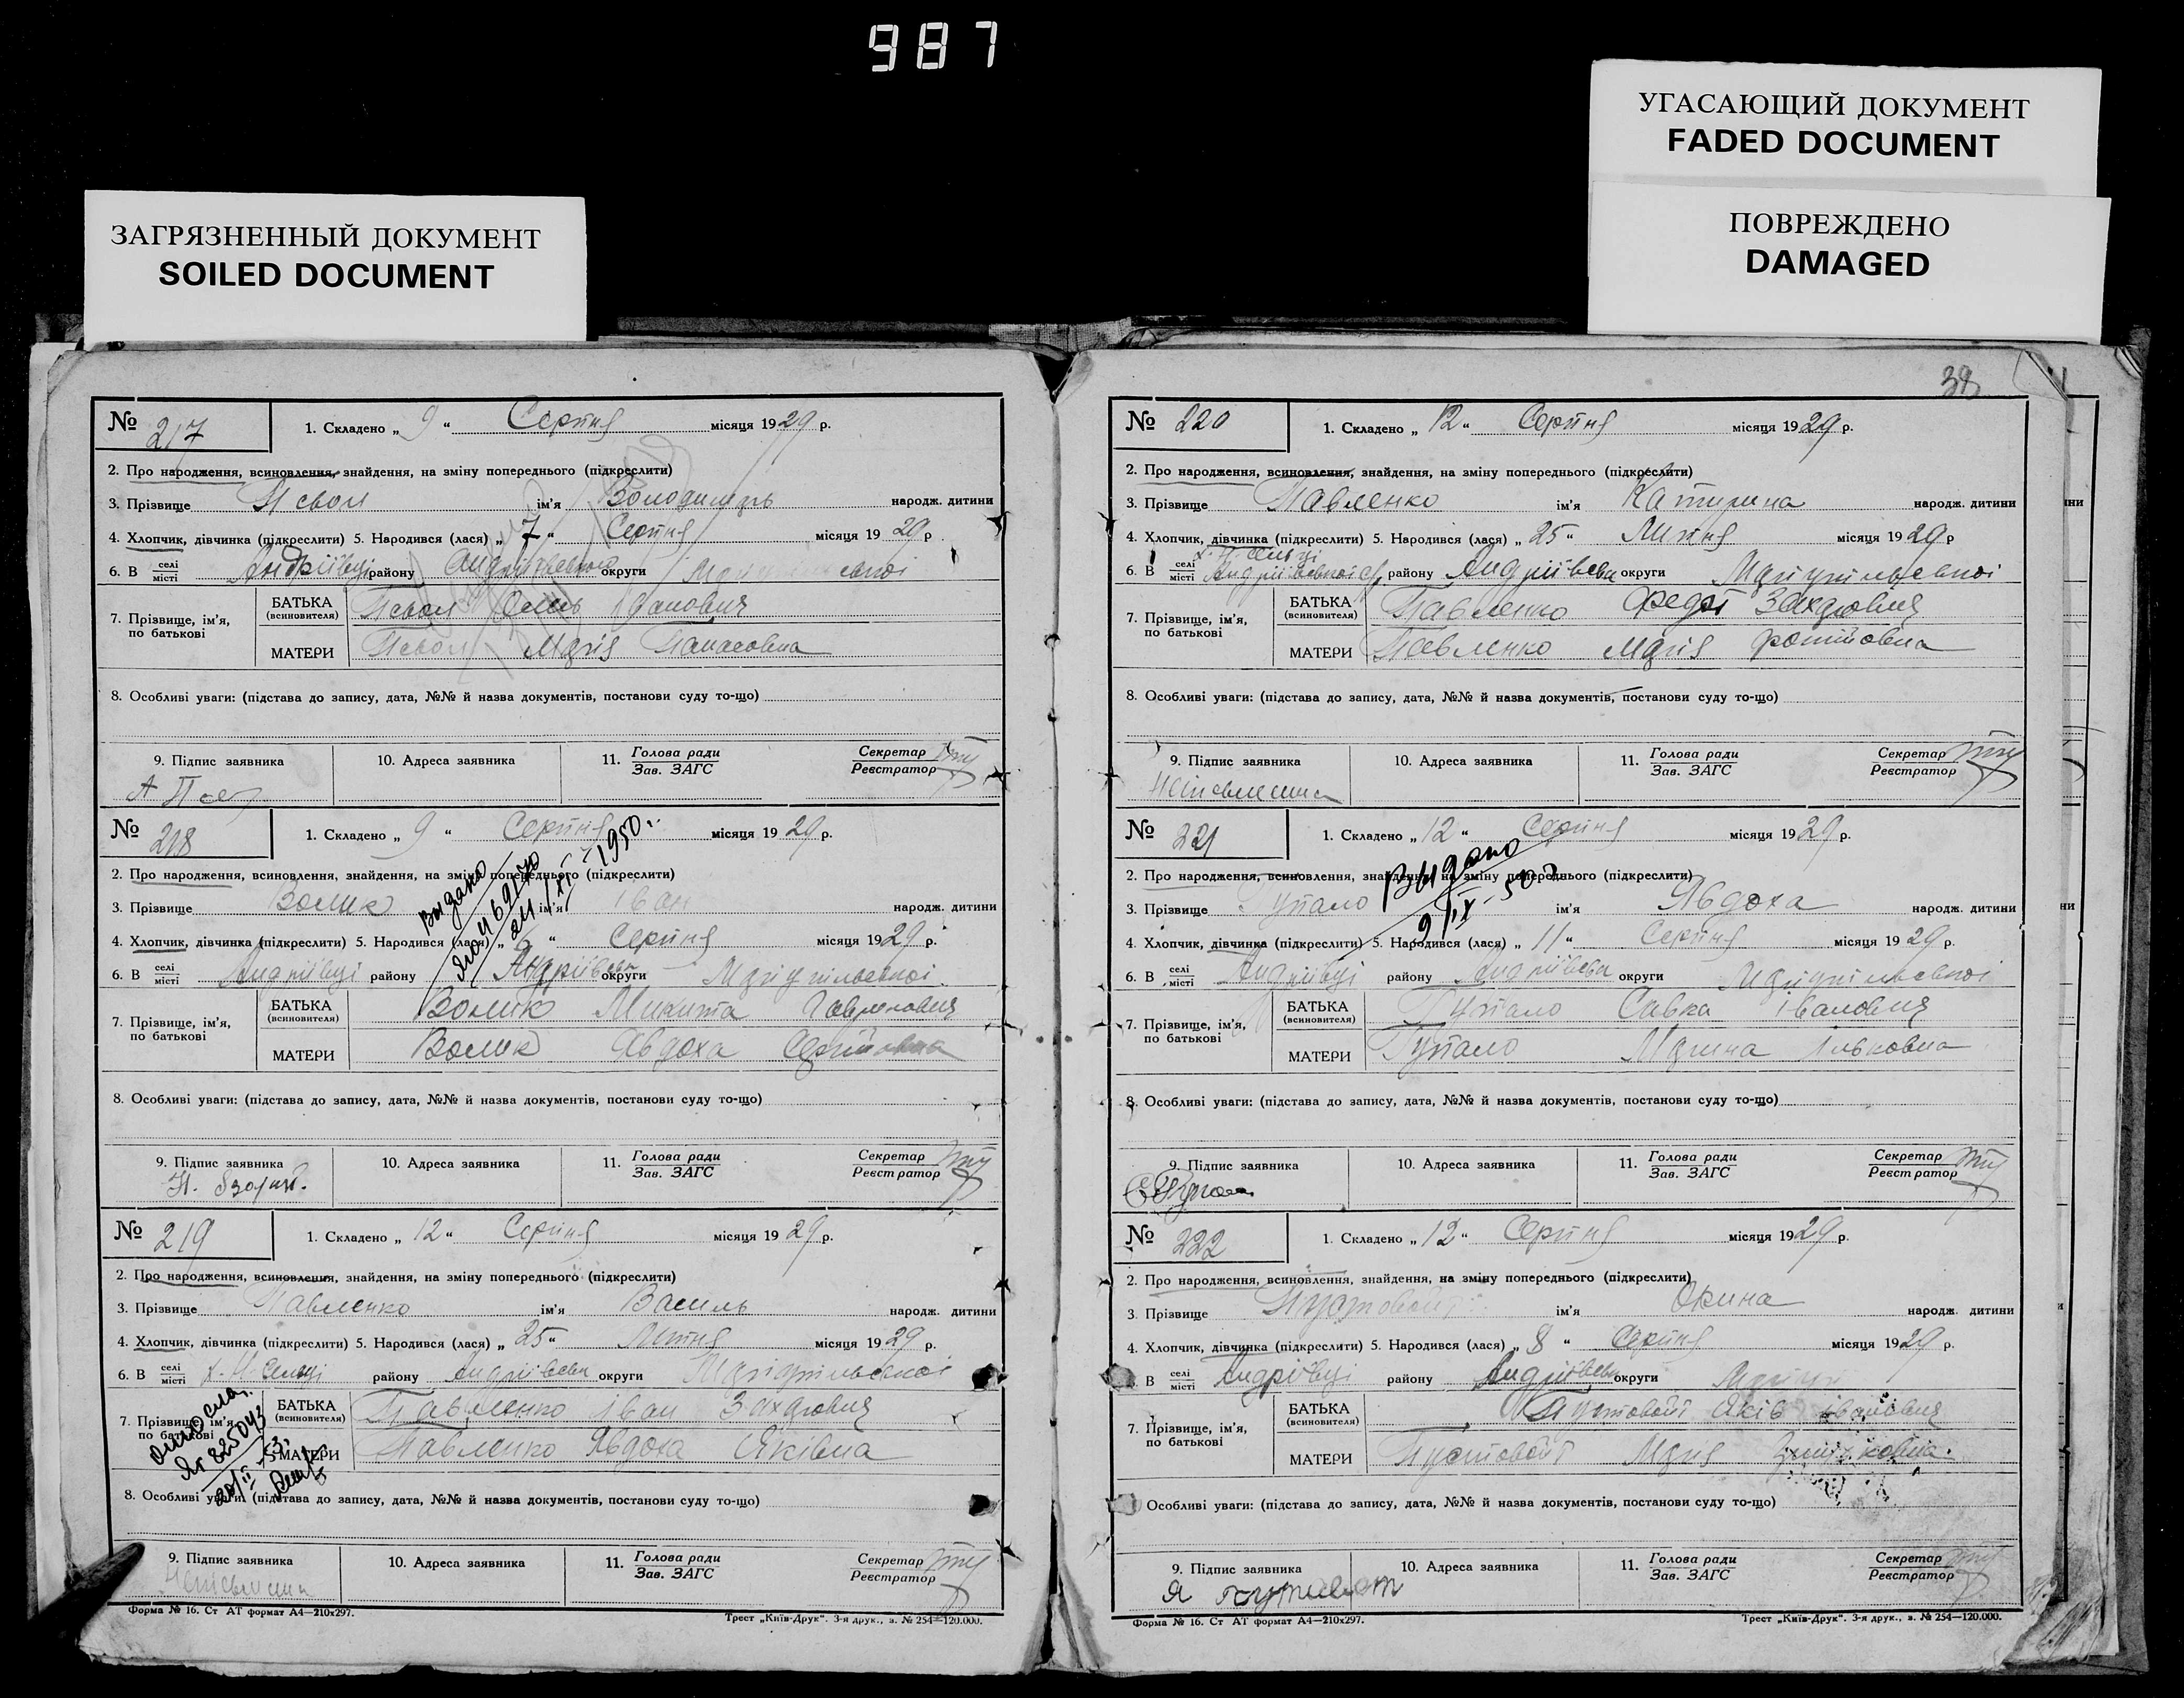 987
УГАСАЮЩИЙ ДОКУМЕНТ
FADED DOCUMENT
ПОВРЕЖДЕНО
DAMAGED
ЗАГРЯЗНЕННЫЙ ДОКУМЕНТ
SOILED DOCUMENT
№ 217
1. Складено „ 9 “ Серпня місяця 1929 р.
2. Про народження, всиновлення, знайдення, на зміну попереднього (підкреслити)
3. Прізвище ім'я Володимир народж. дитини
4. Хлопчик, дівчинка (підкреслити) 5. Народився (лася) „ 7 “ Серпня місяця 1929 р
6. В селі місті Андріївці району округи
7. Прізвище, ім'я, по батькові
БАТЬКА (всиновителя) Іванович
МАТЕРИ Марія Панасовна
8. Особливі уваги: (підстава до запису, дата, №№ й назва документів, постанови суду то-що)
9. Підпис заявника
10. Адреса заявника
11. Голова ради Зав. ЗАГС
Секретар Реєстратор
№ 218
1. Складено „ 9 “ Серпня місяця 1929 р.
2. Про народження, всиновлення, знайдення, на зміну попереднього (підкреслити)
3. Прізвище Волик ім'я Іван народж. дитини
4. Хлопчик, дівчинка (підкреслити) 5. Народився (лася) „ 6 “ Серпня місяця 1929 р.
6. В селі місті Андріївці району Андріївськ округи Маріупільської
7. Прізвище, ім'я, по батькові
БАТЬКА (всиновителя) Волик Микита
МАТЕРИ Волик Явдоха
8. Особливі уваги: (підстава до запису, дата, №№ й назва документів, постанови суду то-що)
9. Підпис заявника
10. Адреса заявника
11. Голова ради Зав. ЗАГС
Секретар Реєстратор
№ 219
1. Складено „ 12 “ Серпня місяця 1929 р.
2. Про народження, всиновлення, знайдення, на зміну попереднього (підкреслити)
3. Прізвище Павленко ім'я Василь народж. дитини
4. Хлопчик, дівчинка (підкреслити) 5. Народився (лася) „ 25 “ Липня місяця 1929 р.
6. В селі місті району Андріївськ округи Маріупільської
7. Прізвище, ім'я, по батькові
БАТЬКА (всиновителя) Павленко Іван Захарович
МАТЕРИ Павленко Явдоха Яківна
8. Особливі уваги: (підстава до запису, дата, №№ й назва документів, постанови суду то-що)
9. Підпис заявника
10. Адреса заявника
11. Голова ради Зав. ЗАГС
Секретар Реєстратор
Форма № 16. Ст АТ формат А4—210х297.
Трест „Київ-Друк“. 3-я друк., з. № 254—120.000.
38
№ 220
1. Складено „ 12 “ Серпня місяця 1929 р.
2. Про народження, всиновлення, знайдення, на зміну попереднього (підкреслити)
3. Прізвище Павленко ім'я Катерина народж. дитини
4. Хлопчик, дівчинка (підкреслити) 5. Народився (лася) „ 25 “ Липня місяця 1929 р
6. В селі місті району Андріївськ округи Маріупільської
7. Прізвище, ім'я, по батькові
БАТЬКА (всиновителя) Павленко Федот Захарович
МАТЕРИ Павленко Марія
8. Особливі уваги: (підстава до запису, дата, №№ й назва документів, постанови суду то-що)
9. Підпис заявника
10. Адреса заявника
11. Голова ради Зав. ЗАГС
Секретар Реєстратор
№ 221
1. Складено „ 12 “ Серпня місяця 1929 р.
2. Про народження, всиновлення, знайдення, на зміну попереднього (підкреслити)
3. Прізвище Гупало ім'я Явдоха народж. дитини
4. Хлопчик, дівчинка (підкреслити) 5. Народився (лася) „ 11 “ Серпня місяця 1929 р.
6. В селі місті Андріївці району Андріївськ округи Маріупільської
7. Прізвище, ім'я, по батькові
БАТЬКА (всиновителя) Гупало Савка Іванович
МАТЕРИ Гупало Ільковна
8. Особливі уваги: (підстава до запису, дата, №№ й назва документів, постанови суду то-що)
9. Підпис заявника
10. Адреса заявника
11. Голова ради Зав. ЗАГС
Секретар Реєстратор
№ 222
1. Складено „ 12 “ Серпня місяця 1929 р.
2. Про народження, всиновлення, знайдення, на зміну попереднього (підкреслити)
3. Прізвище Пустовойт ім'я народж. дитини
4. Хлопчик, дівчинка (підкреслити) 5. Народився (лася) „ 8 “ Серпня місяця 1929 р.
В селі місті Андріївці району Андріївськ округи
7. Прізвище, ім'я, по батькові
БАТЬКА (всиновителя) Пустовойт Яків Іванович
МАТЕРИ Пустовойт Марія
Особливі уваги: (підстава до запису, дата, №№ й назва документів, постанови суду то-що)
9. Підпис заявника
10. Адреса заявника
11. Голова ради Зав. ЗАГС
Секретар Реєстратор
Форма № 16. Ст АТ формат А4—210х297.
Трест „Київ-Друк“. 3-я друк., з. № 254—120.000.